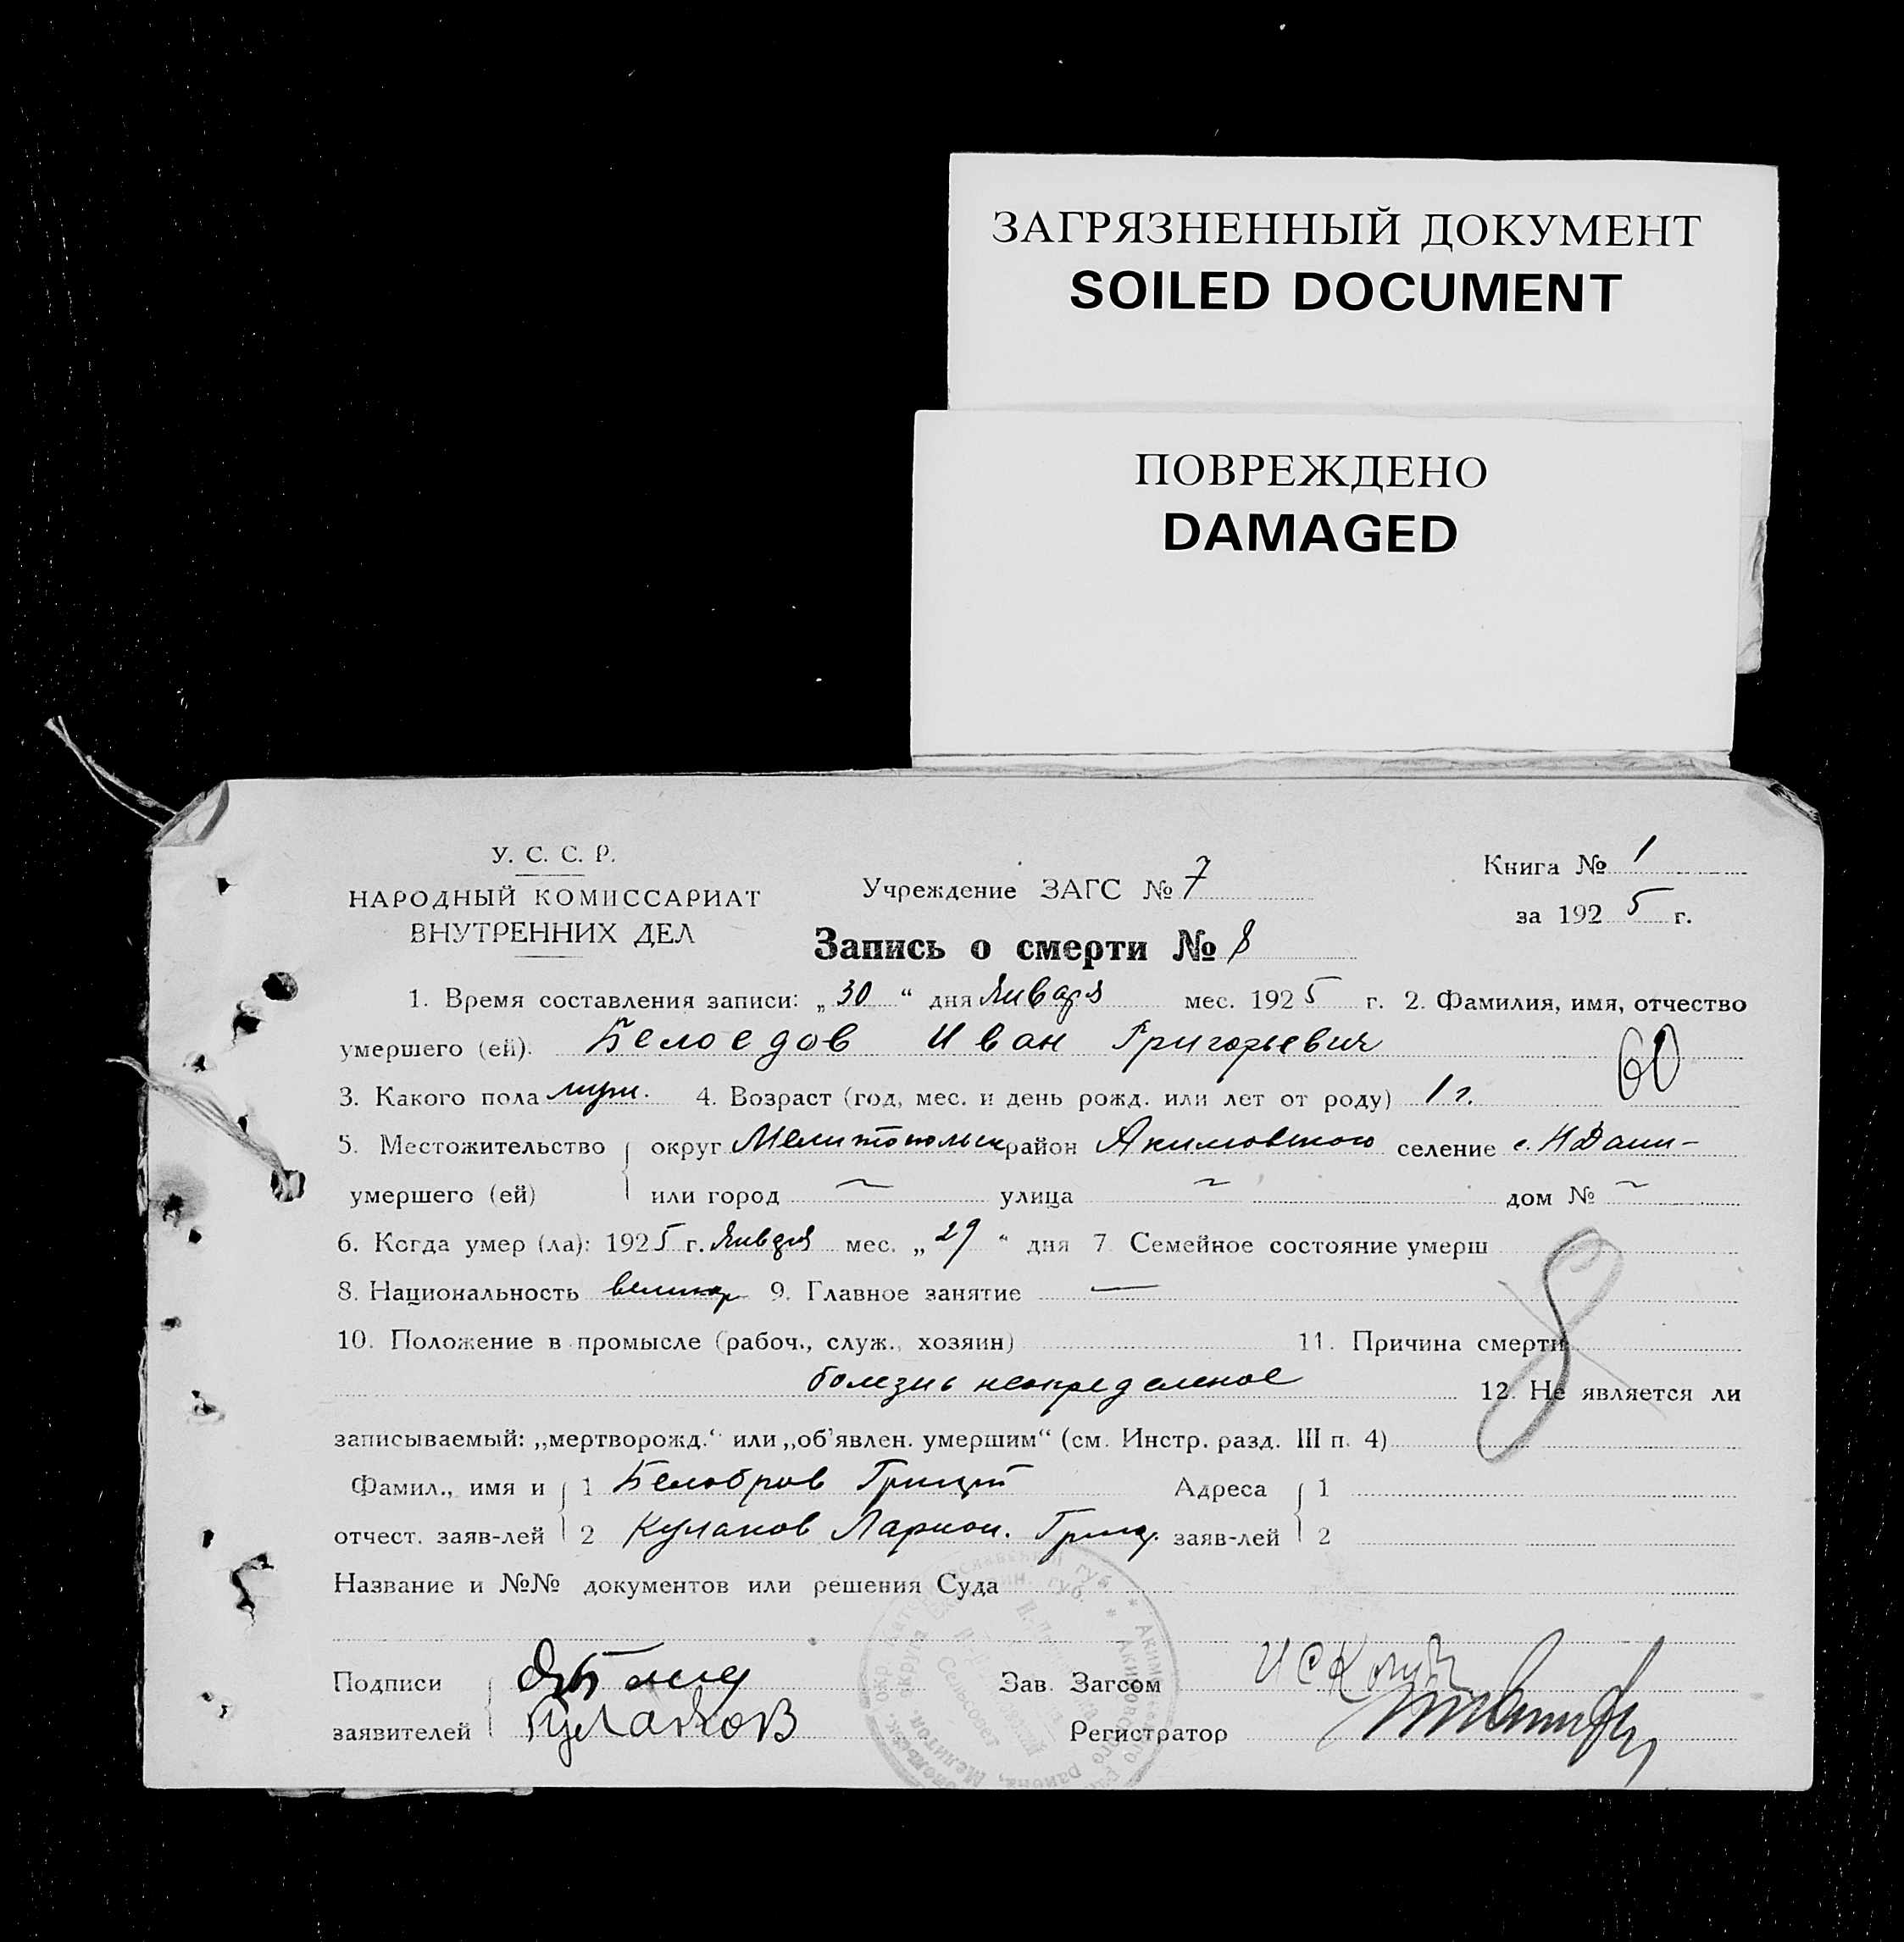 ЗАГРЯЗНЕННЫЙ ДОКУМЕНТ
SOILED DOCUMENT
ПОВРЕЖДЕНО
DAMAGED
У. С. С. Р.
НАРОДНЫЙ КОМИССАРИАТ
ВНУТРЕННИХ ДЕЛ
Учреждение ЗАГС № 7
Книга № 1
за 1925 г.
Запись о смерти № 8
1. Время составления записи: „30“ дня Января мес. 1925 г. 2. Фамилия, имя, отчество
умершего (ей). Белоедов Иван Григорьевич
60
3. Какого пола муж. 4. Возраст (год, мес. и день рожд. или лет от роду) 1 г.
5. Местожительство округ Мелитопольск район Акимовского селение с. Н Дани-
умершего (ей) или город улица дом №
6. Когда умер (ла): 1925 г. Января мес. „29“ дня 7 Семейное состояние умерш
8. Национальность великор 9. Главное занятие —
10. Положение в промысле (рабоч., служ., хозяин) 11. Причина смерти
болезнь неопределеное 12. Не является ли
8
записываемый: „мертворожд.“ или „об’явлен. умершим“ (см. Инстр. разд. III п. 4)
Фамил., имя и 1 Белобров Адреса 1
отчест. заяв-лей 2 Кулаков Ларион. Григ. заяв-лей 2
Название и №№ документов или решения Суда
Подписи Зав. Загсом
заявителей Кулаков Регистратор